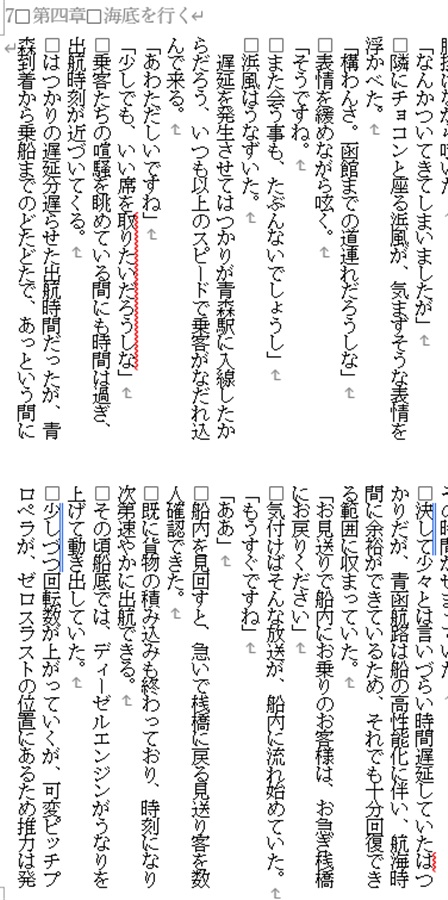 7　第四章　海底を行く
「なんかついてきてしまいましたが」
　隣にチョコンと座る浜風が、気まずそうな表情を
浮かべた。
「構わんさ。函館までの道連れだろうしな」
　表情を緩めながら呟く。
「そうですね。
　また会う事も、たぶんないでしょうし」
　浜風はうなずいた。
　遅延を発生させてはつかりが青森駅に入線したか
らだろう、いつも以上のスピードで乗客がなだれ込
んで来る。
「あわただしいですね」
「少しでも、いい席を取りたいだろうしな」
　乗客たちの喧騒を眺めている間にも時間は過ぎ、
出航時刻が近づいてくる。
　はつかりの遅延分遅らせた出航時間だったが、青
森到着から乗船までのどたどたで、あっという間に
　決して少々とは言いづらい時間遅延していたはつ
かりだが、青函航路は船の高性能化に伴い、航海時
間に余裕ができているため、それでも十分回復でき
る範囲に収まっていた。
「お見送りで船内にお乗りのお客様は、お急ぎ桟橋
にお戻りください」
　気付けばそんな放送が、船内に流れ始めていた。
「もうすぐですね」
「ああ」
　船内を見回すと、急いで桟橋に戻る見送り客を数
人確認できた。
　既に貨物の積み込みも終わっており、時刻になり
次第速やかに出航できる。
　その頃船底では、ディーゼルエンジンがうなりを
上げて動き出していた。
　少しづつ回転数が上がっていくが、可変ピッチプ
ロペラが、ゼロスラストの位置にあるため推力は発